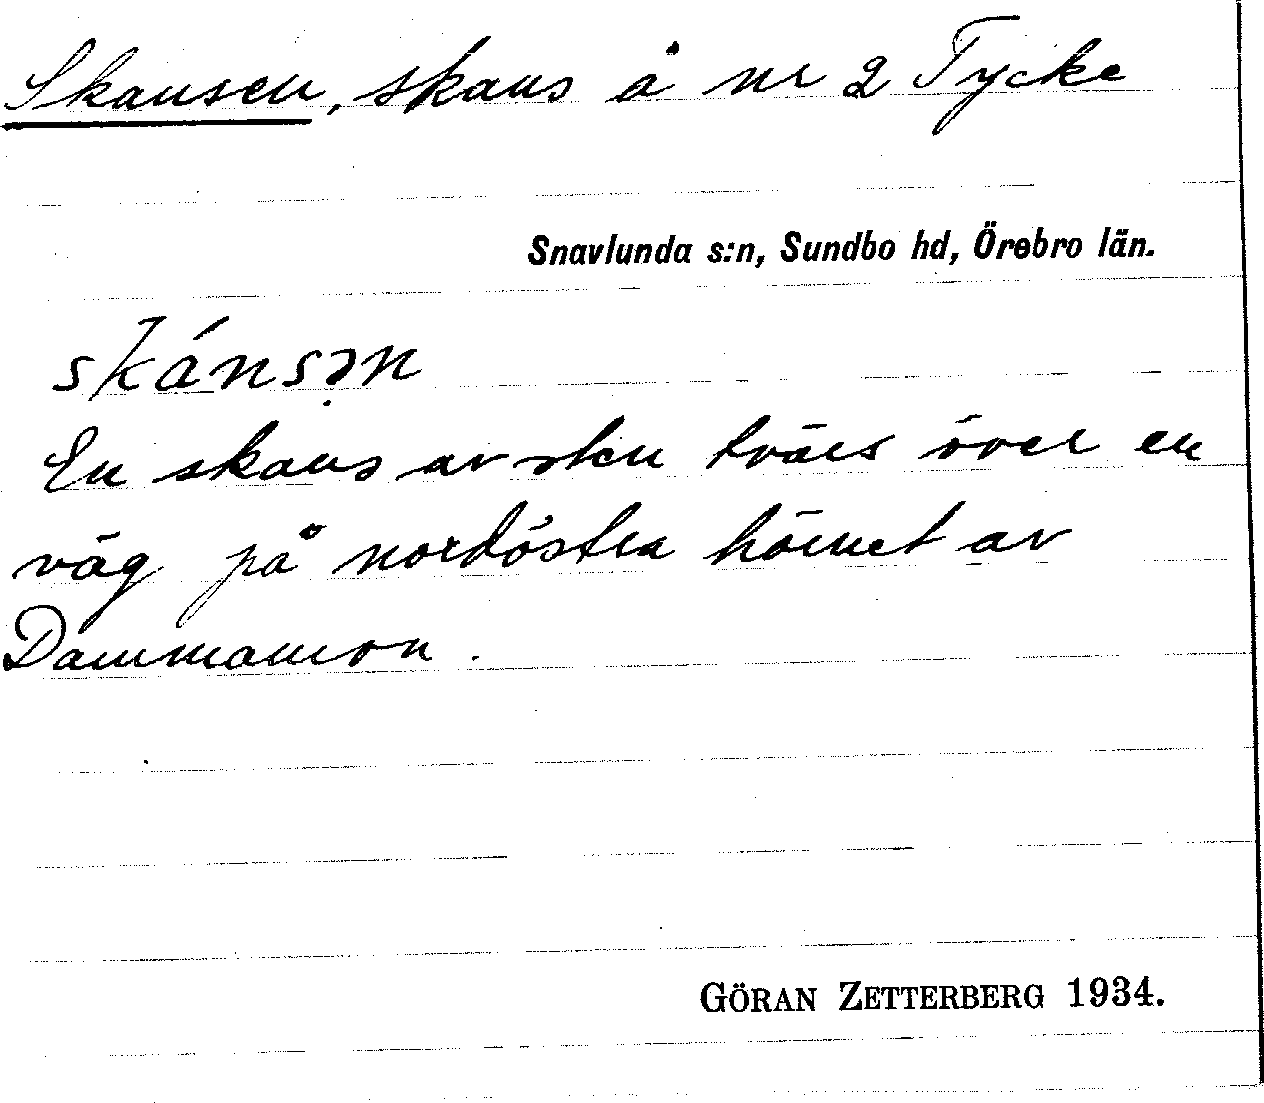 Skansen, skans å nr 2 Tycke
Snavlunda s:n, Sundbo hd, Örebro län.
skánsən
En skans av sten tvärs över en
väg på nordöstra hörnet av
Dammamon.
GÖRAN ZETTERBERG 1934.